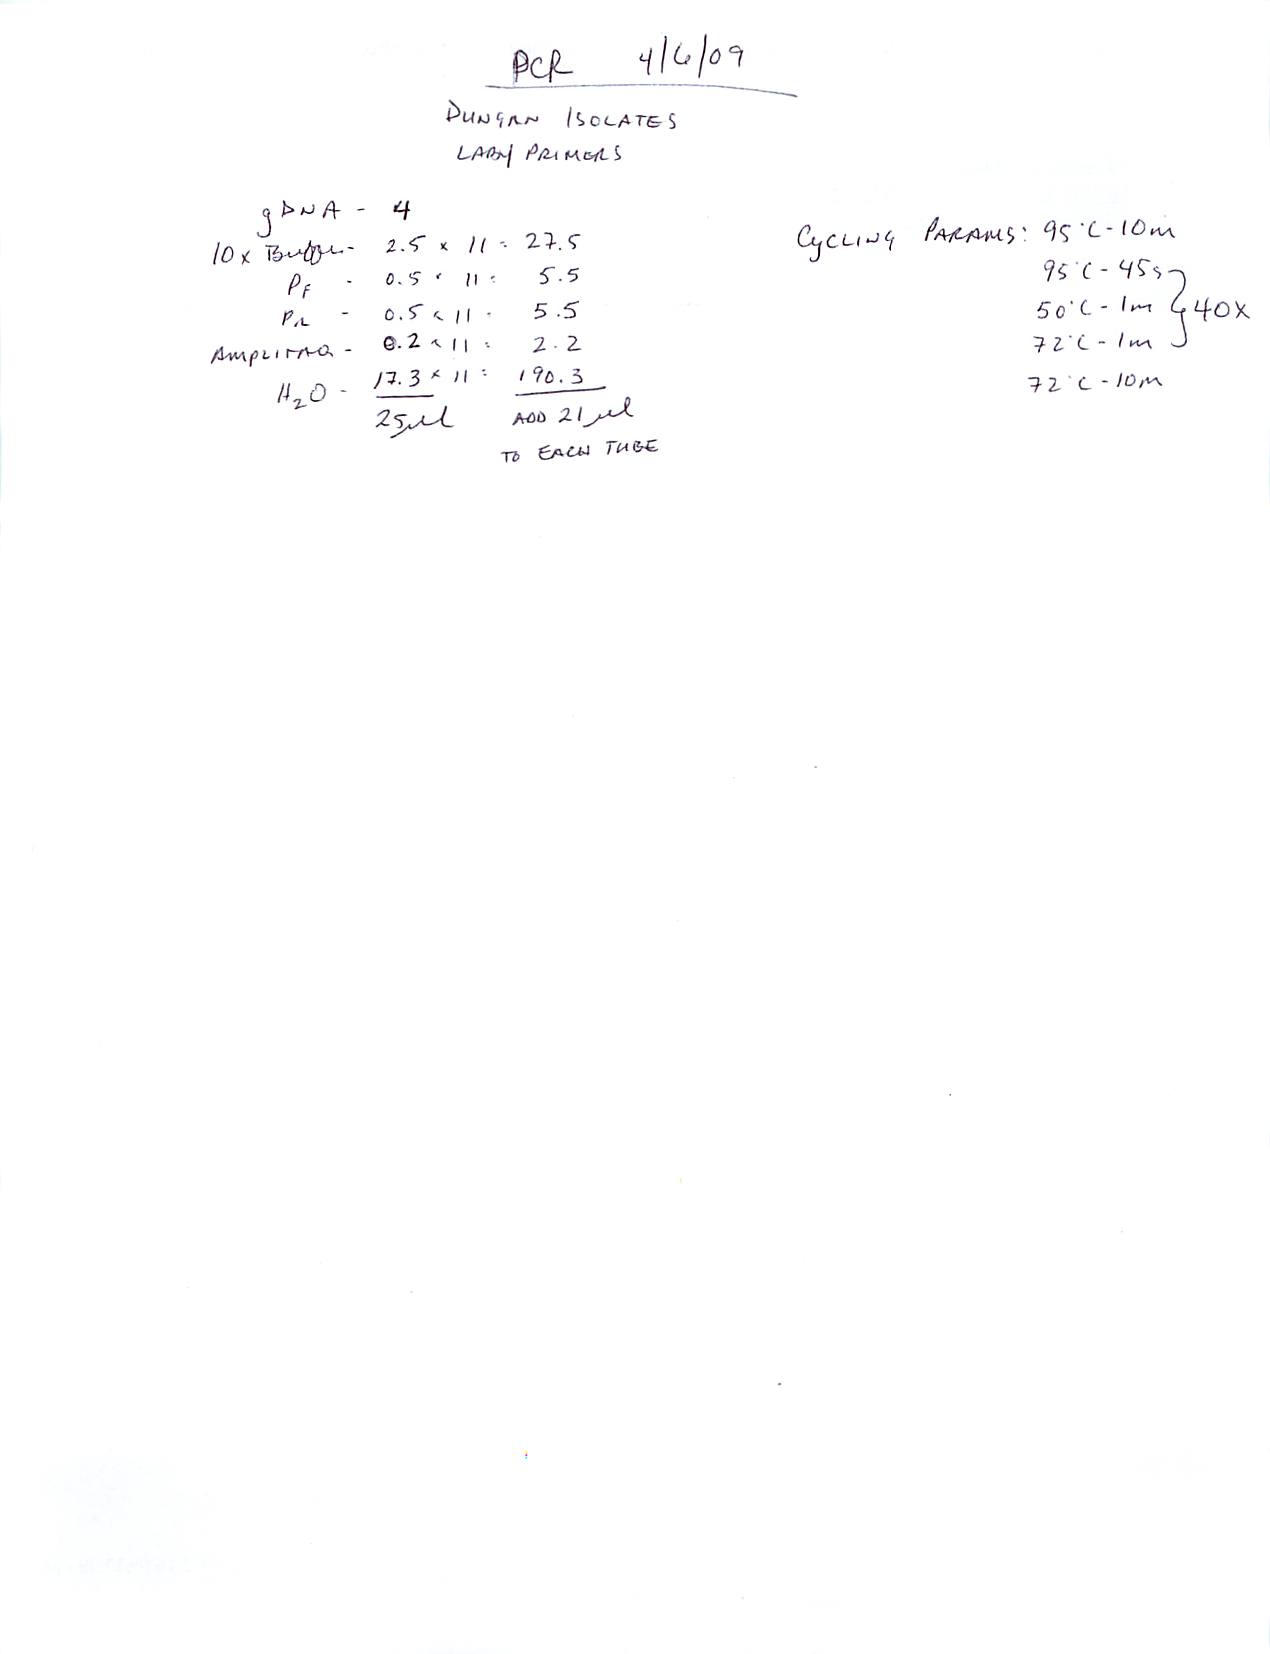 PCR 4/6/09
DUNGAN ISOLATES
LABY PRIMERS
gDNA - 4
10x Buffer - 2.5 x 11 = 27.5
PF - 0.5 x 11 = 5.5
PR - 0.5 x 11 = 5.5
AMPLITAQ - 0.2 x 11 = 2.2
H2O - 17.3 x 11 = 190.3
25µl ADD 21µl
TO EACH TUBE
CYCLING PARAMS: 95°C - 10m
95°C - 45s
50°C - 1m } 40X
72°C - 1m
72°C - 10m